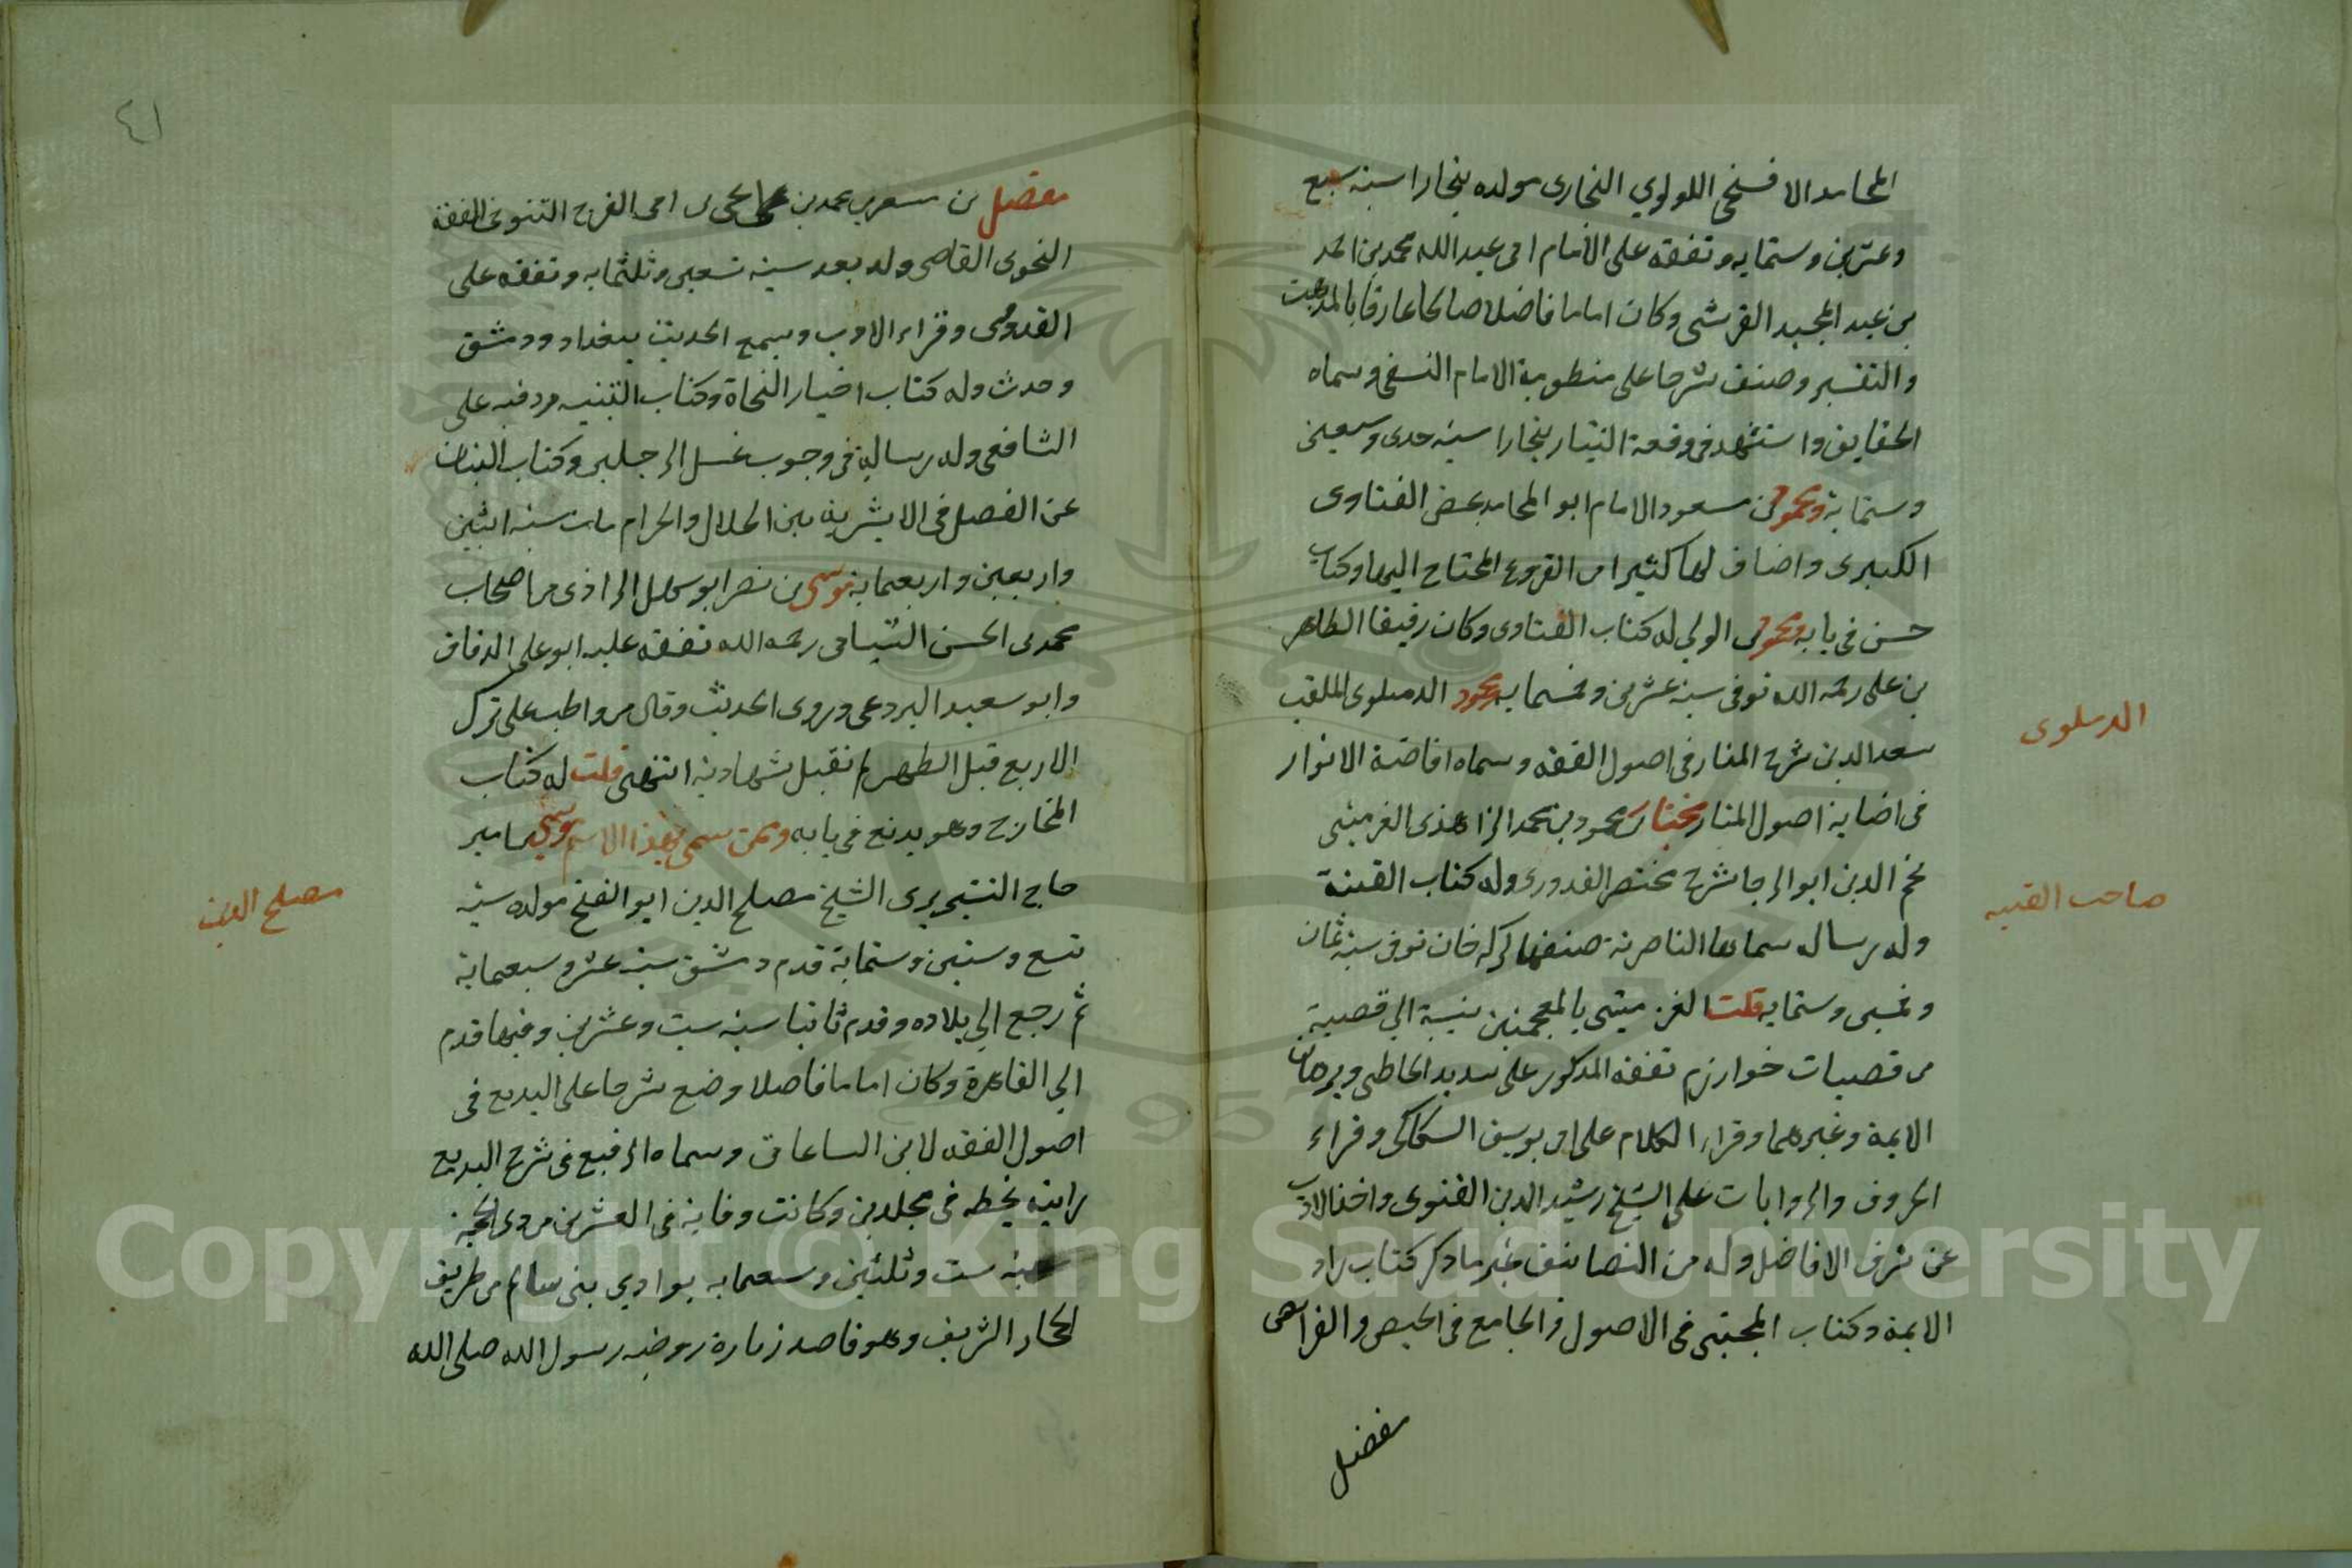 المحامد الافسنجي اللولوي البخاري مولده ببخارا سنه سبع
وعشرين وستمايه وتفقه على الامام ابى عبدالله محمد بن احمد
بن عبد المجيد القرشى وكان اماما فاضلا صالحا عارفا بالمذهب
والتفسير وصنف شرحا على منظومة الامام النسفى وسماه
الحقايق واستشهد فى وقعة التتار ببخارا سنه حدى وسبعين
وستماية ومحمود بن مسعود الامام ابو المحامد بعض الفتاوى
الكبرى واضاف لها كثيرا من الفروع المحتاج اليها وكتاب
حسن فى بابه ومحمود بن الولي له كتاب الفتاوى وكان رفيقا الطاهر
بن على رحمه الله توفى سنة عشرين وخمسمايه ومحمود الدهلوى الملقب
الدهلوى
سعد الدين شرح المنار فى اصول الفقه وسماه افاضة الانوار
فى اضاية اصول المنار مختار بن محمود بن محمد الزاهدى الغزمينى
نجم الدين ابو الرجا شرح مختصر القدورى وله كتاب القنية
صاحب القنيه
وله رساله سماها الناصرية صنفها لبركه خان توفى سنة ثمان
وخمسين وستمايه قلت الغزمينى بالمعجمتين نسبة الي قصبة
من قصبات خوارزم تفقه المذكور على سديد الخاطى وبرهان
الايمة وغيرهما وقرا الكلام على ابى يوسف السكاكى وقراء
الحروف والروايات على الشيخ رشيد الدين القنوى واخذ الادب
عن شرف الافاضل وله من التصانيف غير ما ذكر كتاب زاد
الايمة وكتاب المجتبى فى الاصول والجامع فى الحيض والفرايض
مفضل
٤١
مفضل بن مسعر بن محمد بن يحيى بن ابى الفرج التنوخى الفقه
النحوى القاضى ولد بعد سنة تسعين وثلثمايه وتفقه على
القدورى وقراء الادب وسمع الحديث ببغداد ودمشق
وحدث وله كتاب اخبار النحاة وكتاب التنبيه رد فيه على
الشافعى وله رسالة فى وجوب غسل الرجلين وكتاب البيان
عن الفصل فى الاشربة بين الحلال والحرام مات سنه اثنين
واربعين واربعماية موسى بن نصر ابو سهل الرازى من اصحاب
محمد بن الحسن الشيبانى رحمه الله تفقه عليه ابو على الدقاق
وابو سعيد البردعى وروى الحديث وقال من واظب على ترك
الاربع قبل الظهر لم تقبل شهادته انتهى قلت له كتاب
المخارج وهو بديع فى بابه وممن سمى بهذا الاسم موسى بن امير
حاج التبريزى الشيخ مصلح الدين ابو الفتح مولده سنه
مصلح الدين
تسع وستين وستماية قدم دمشق سنه عشر وسبعماية
ثم رجع الي بلاده وقدم ثانيا سنه ست وعشرين وفيها قدم
الي القاهرة وكان اماما فاضلا وضع شرحا على البديع فى
اصول الفقه لابن الساعاتى وسماه الرفيع فى شرح البديع
رايته بخطه فى مجلدين وكانت وفاته فى العشرين من ذى الحجة
سنة ست وثلثين وسبعمايه بوادي بنى سالم من طريق
الحجاز الشريف وهو قاصد زيارة روضه رسول الله صلى الله
Copyright © King Saud University